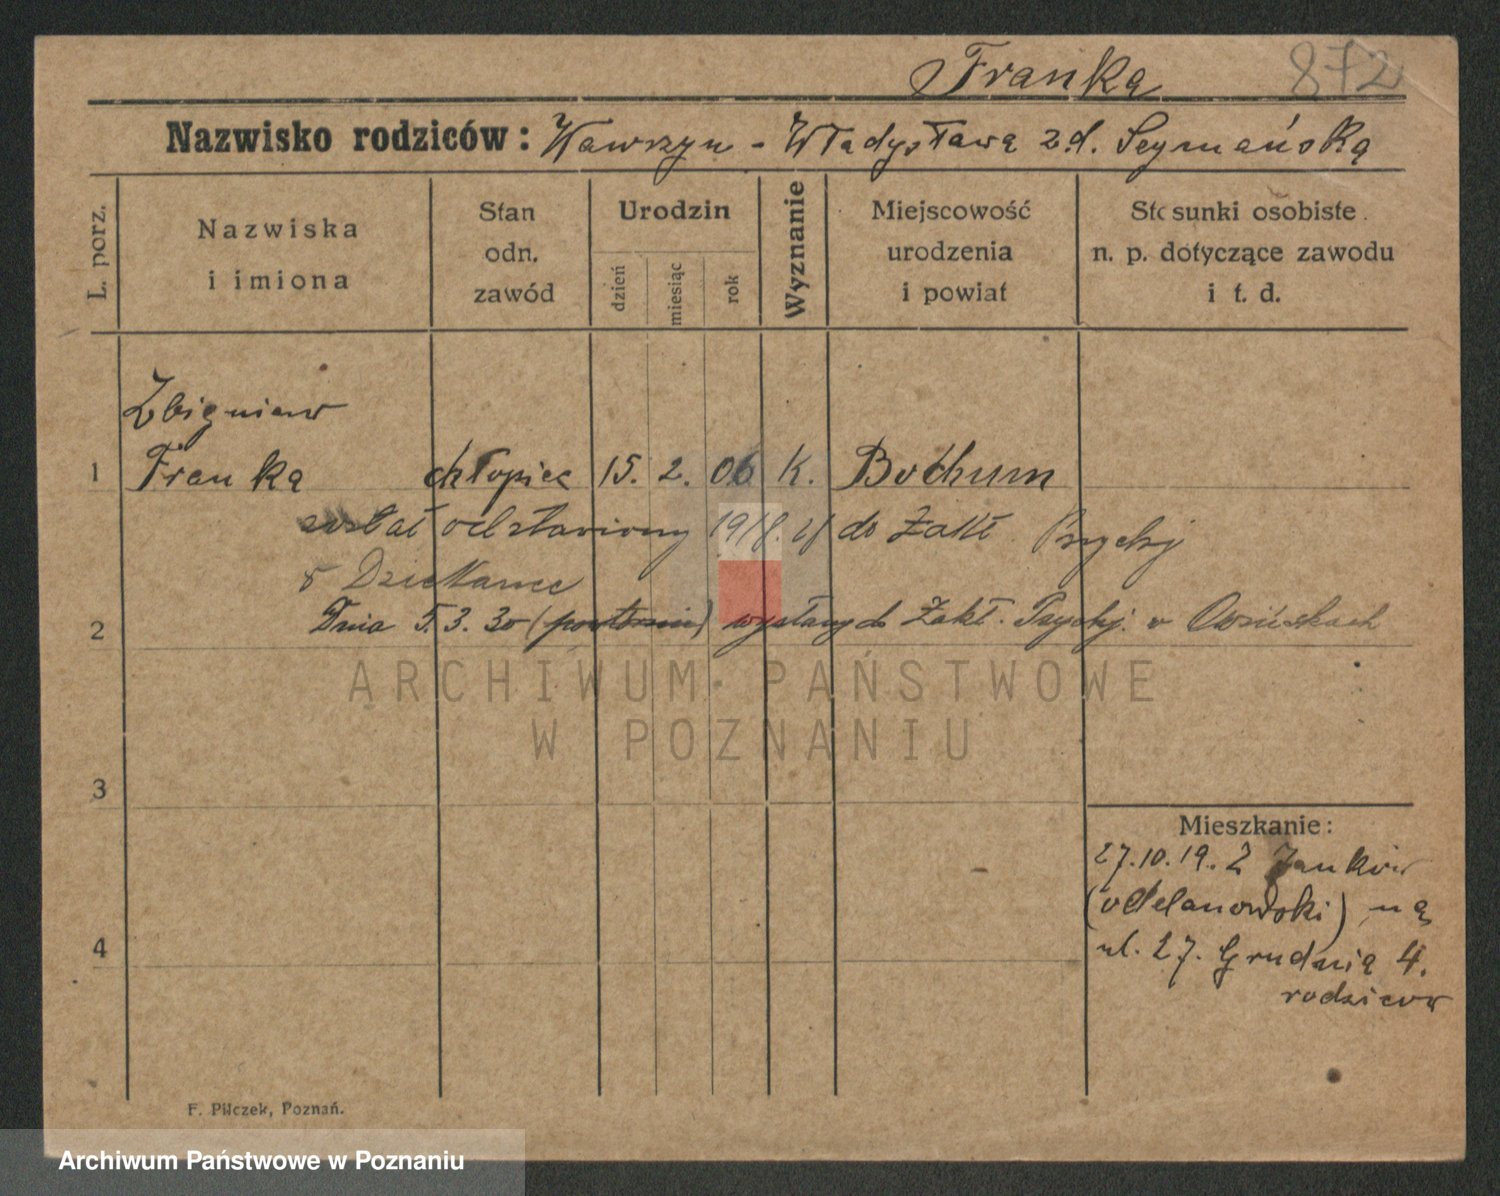 Franka 872
Nazwisko rodziców: Wawrzyn - Władysława z d. Szymańska
L. porz.
Nazwiska i imiona
Stan odn. zawód
Urodzin
dzień
miesiąc
rok
Wyznanie
Miejscowość urodzenia i powiat
Stosunki osobiste n. p. dotyczące zawodu i t. d.
Zbigniew
1 Franka chłopiec 15. 2. 06 K. Bochum
został odstawiony do Zakł. Psychj
Dziekance
2 Dnia 5.3.30 (powtórnie) wysłany do Zakł. Psychj. w Owińskach
ARCHIWUM PAŃSTWOWE
W POZNANIU
3
Mieszkanie:
27.10.19. Z Janków
(odolanowski) na
4 ul. 27. Grudnia 4.
rodziców
F. Pilczek, Poznań.
Archiwum Państwowe w Poznaniu